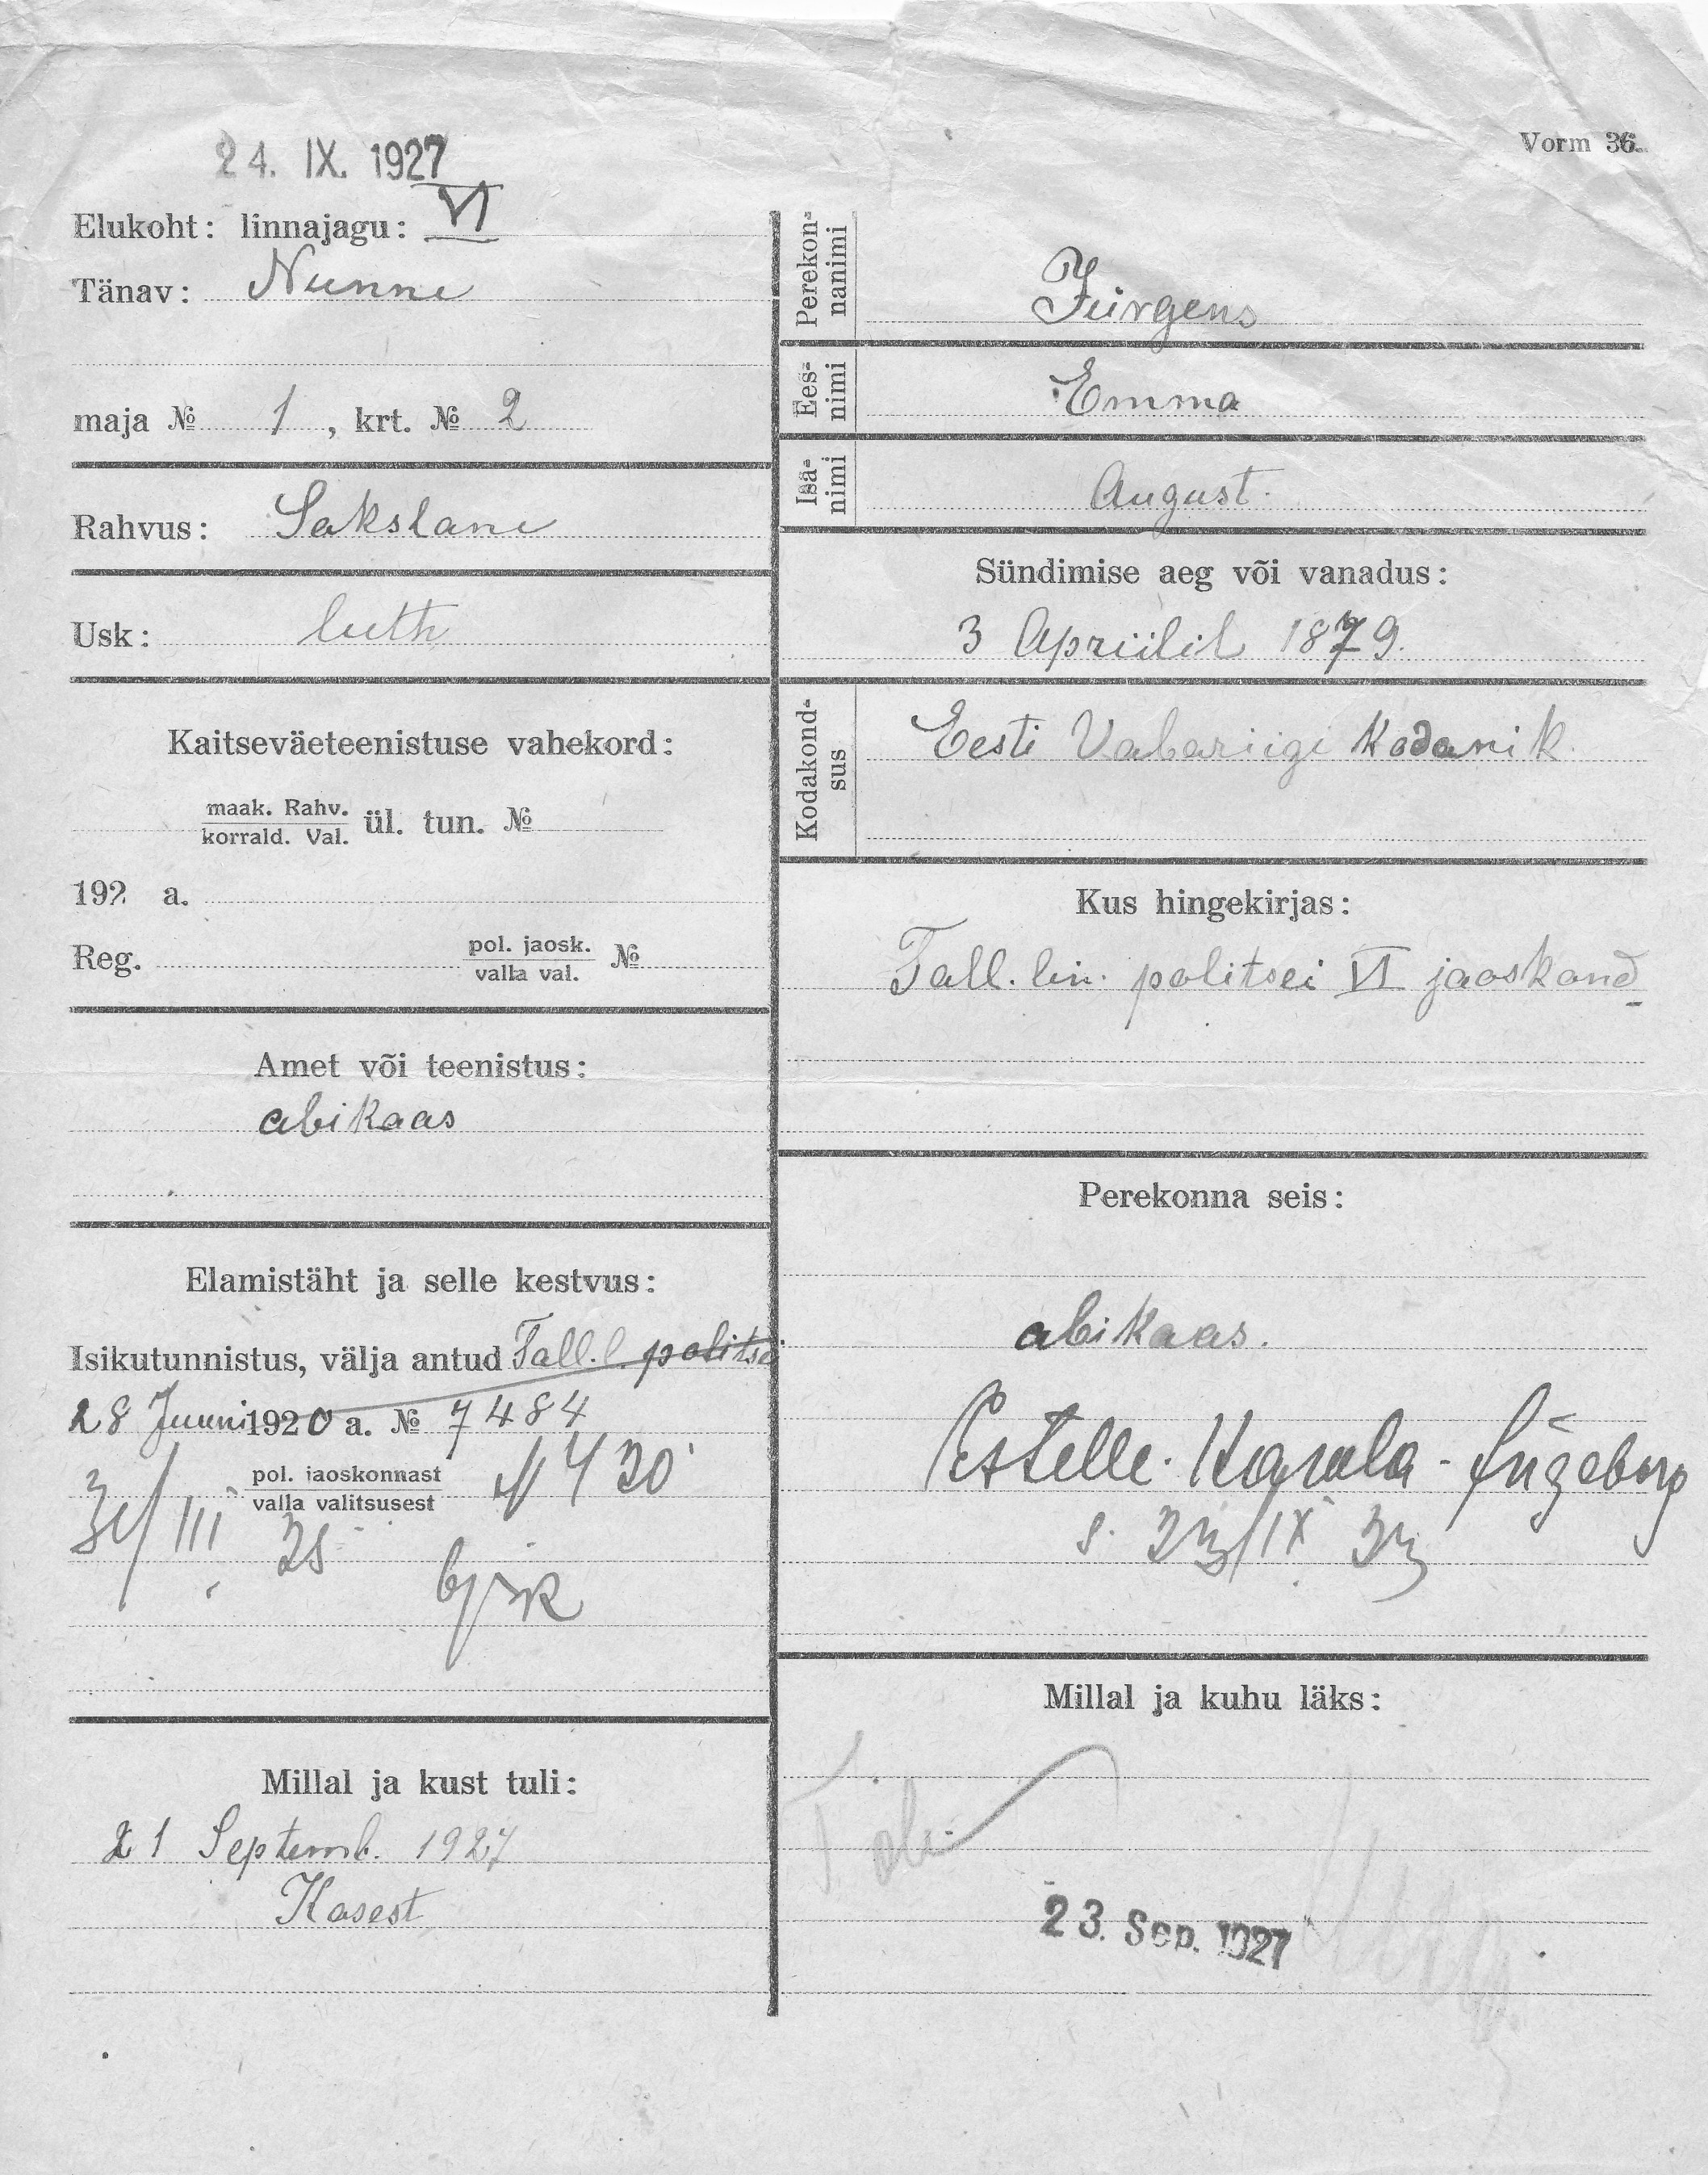 24. IX. 1927
Vorm 36.
Elukoht: linnajagu: VI
Tänav: Nunne
maja № 1, krt. № 2
Rahvus: Sakslane
Usk: luth
Kaitseväeteenistuse vahekord:
maak. Rahv.
korrald. Val. ül. tun. №
192 a.
Reg. pol. jaosk.
valla val. №
Amet või teenistus:
abikaas
Elamistäht ja selle kestvus:
Isikutunnistus, välja antud Tall. l. politsei
28 Juuni 1920 a. № 7484
pol. jaoskonnast
valla valitsusest
Millal ja kust tuli:
21 Septemb. 1927
Kosest
Perekon-
nanimi
Jürgens
Ees-
nimi
Emma
Isa-
nimi
August.
Sündimise aeg või vanadus:
3 Apriilil 1879.
Kodakond-
sus
Eesti Vabariigi kodanik.
Kus hingekirjas:
Tall. lin. politsei VI jaoskond
Perekonna seis:
abikaas.
Estelle-Karula-Ingeborg
Millal ja kuhu läks:
23. Sep. 1927